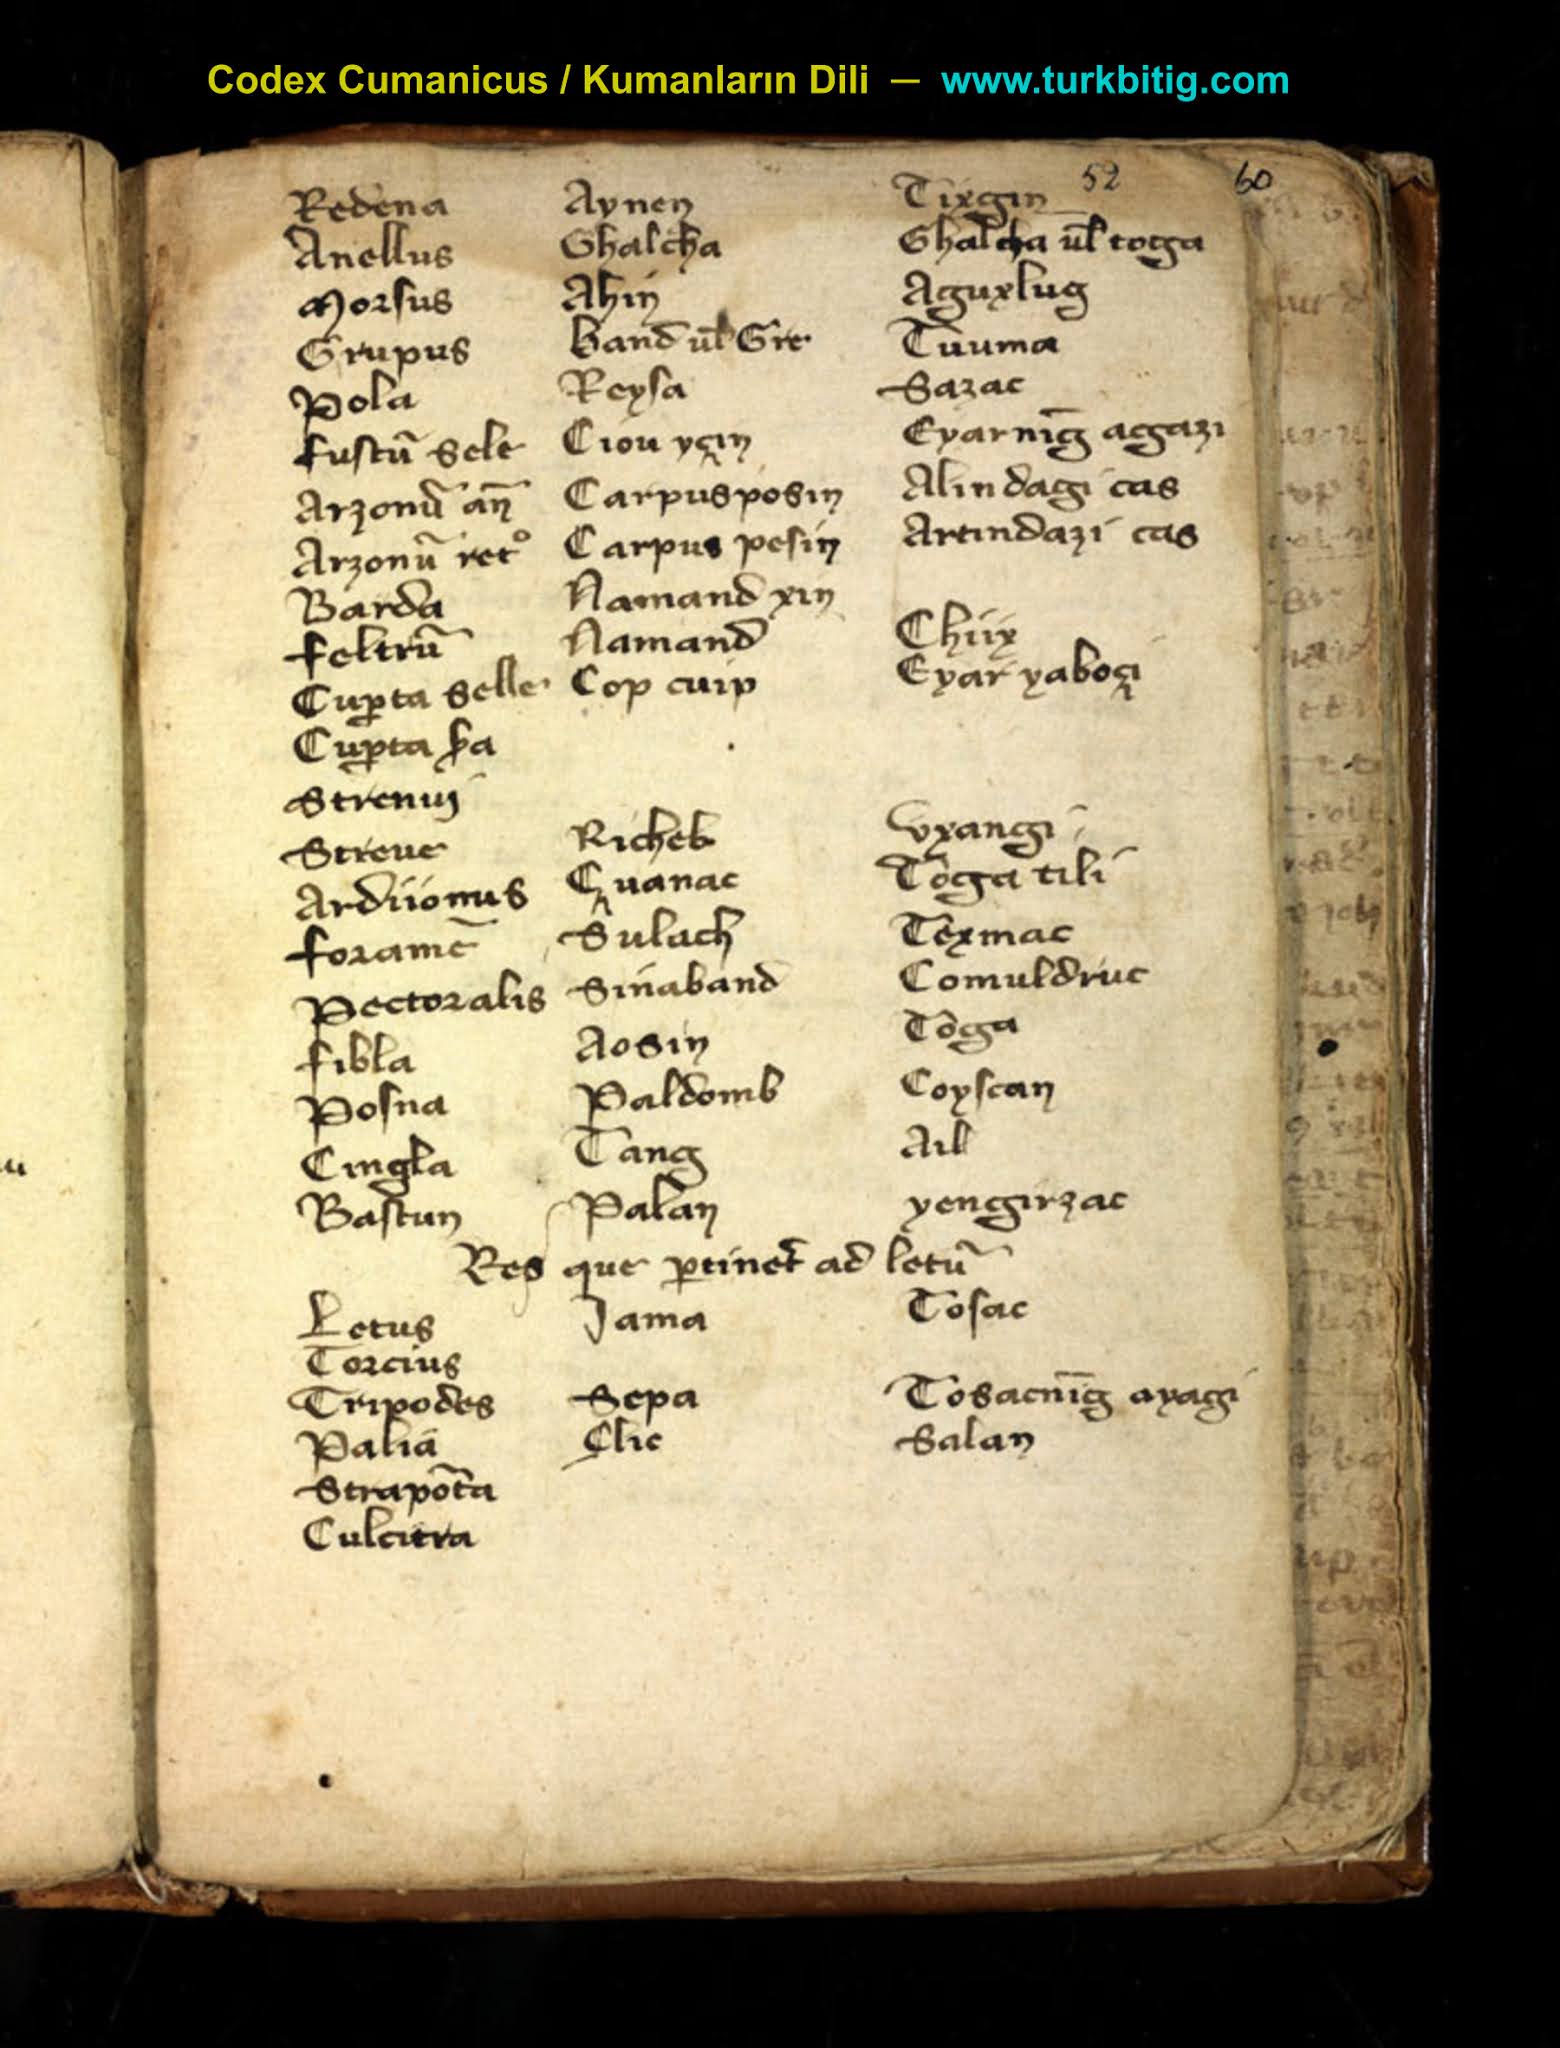 Codex Cumanicus / Kumanların Dili — www.turkbitig.com
52 60
Redena Aynen Tixgin
Anellus Ghalcha Ghalcha ul̄ toga
Morsus Ahin Aguxlug
Grupus band ul̄ Gre Tuuma
Pola Reysa Sazac
fustū sele Ciou yçin Eyarnīg agazi
Arzonū an̄ Carpus posin Alindagi cas
Arzonū ret° Carpus pesin Artindazi cas
Barda Namand xin
feltrū Namand Chiix
Cuꝑta selle Cop cuip Eyar yaboçi
Cuꝑta
Strenuj
Streue Richeb vxangi
Ardiionus Çuanac Toga tili
foramē Sulach Texmac
Pectoralis Sinaband Comuldruc
fibla Aosin Toga
Posna Paldomb Coyscan
Cingla Tang Ail
Bastun Palan yengirzac
Res que ꝑtinet ad letū
Letus Jama Tosac
Torcius
Tripodes Sepa Tosacnīg ayagi
Palia Clic Salan
Strapōta
Culcitra